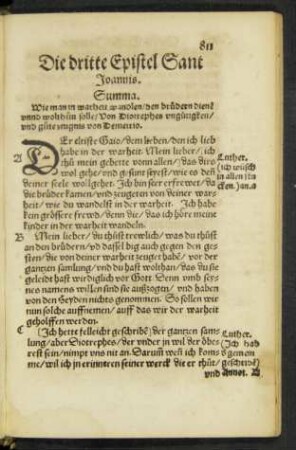 811
Die dritte Epistel Sant
Joannis.
Summa.
Wie man in warheit wandlen / den brüdern dienē
vnnd wolthůn solle / Von Diotrephes vngüngkeit /
vnd gůte zeugnis von Demetrio.
A
DEr eltiste Gaio / dem lieben / den ich lieb
habe in der warheit. Mein lieber / ich
thů mein gebette vonn allen / das dirs
wol gehe / vnd gesunt seyest / wie es den
deiner seele wollgehet. Ich bin seer erfrewet / da
die brüder kamen / vnd zeugeten von deiner war=
heit / wie du wandelst in der warheit. Ich habe
kein grössere frewd / denn die / das ich höre meine
kinder in der warheit wandeln.
Luther.
(ich wüsch
in allen stu
cken.
B Mein lieber / du thůst trewlich / was du thůst
an den brüdern / vñ dassel big auch gegen den ge=
sten / die von deiner warheit zeuget habē / vor der
gantzen samlung / vnd du hast wolthan / das du sie
geleidt hast wirdiglich vor Gott Denn vmb sey=
nes namens willen sind sie außzogen / vnd haben
von den Heyden nichts genommen. So sollen wir
nun solche auffnemen / auff das wir der warheit
geholffen werden.
C (Ich hette felleicht geschribē) der gantzen sam=
lung / aber Diotrephes / der vnder jn wil der öbe=
rest sein / nimpt vns nit an. Darum weñ ich kom=
me / wil ich jn erinnern seiner werck die er thůt /
Luther.
(Ich hab
der gemein
geschribē)
vnd